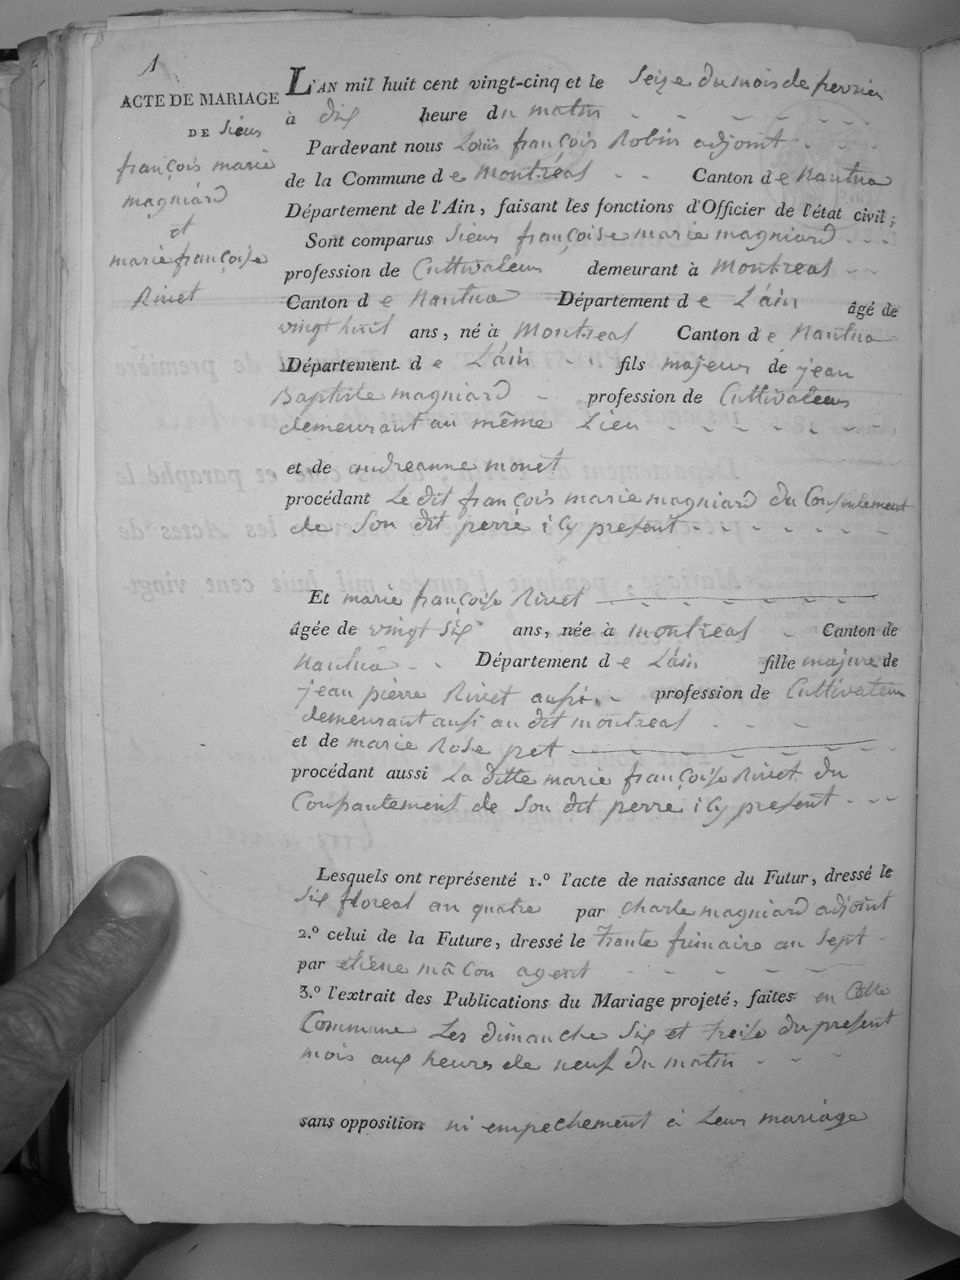 1
ACTE DE MARIAGE
DE Sieur
françois marie
magniard
et
marie françoise
Rivet
L'AN mil huit cent vingt-cinq et le Seize du mois de fevrier
à dix heure du matin
Pardevant nous Louis françois Robin adjoint
de la Commune de Montréal Canton de Nantua
Département de l'Ain, faisant les fonctions d'Officier de l'état civil;
Sont comparus Sieur françoise marie magniard
profession de Cultivateur demeurant à Montreal
Canton de Nantua Département de L'ain âgé de
vingt huit ans, né à Montreal Canton de Nantua
Département de L'ain fils majeur de jean
Baptiste magniard profession de Cultivateur
demeurant au même Lieu
et de andreanne monet
procédant Le dit françois marie magniard du Consentement
de Son dit perre i Cy present
Et marie françoise Rivet
âgée de vingt Six ans, née à montreal Canton de
Nantua Département de L'ain fille majure de
jean pierre Rivet aussi profession de Cultivateur
demeurant aussi au dit montreal
et de marie Rose pet
procédant aussi La ditte marie françoise Rivet du
Consantement de Son dit perre i Cy present
Lesquels ont représenté 1.º l'acte de naissance du Futur, dressé le
Six floreal an quatre par Charle magniard adjoint
2.º celui de la Future, dressé le trante frimaire an Sept
par etiene mâcon agent
3.º l'extrait des Publications du Mariage projeté, faites en Cette
Commune Les dimanche Six et treise du present
mois aux heures de neuf du matin
sans opposition ni empechement à Leur mariage